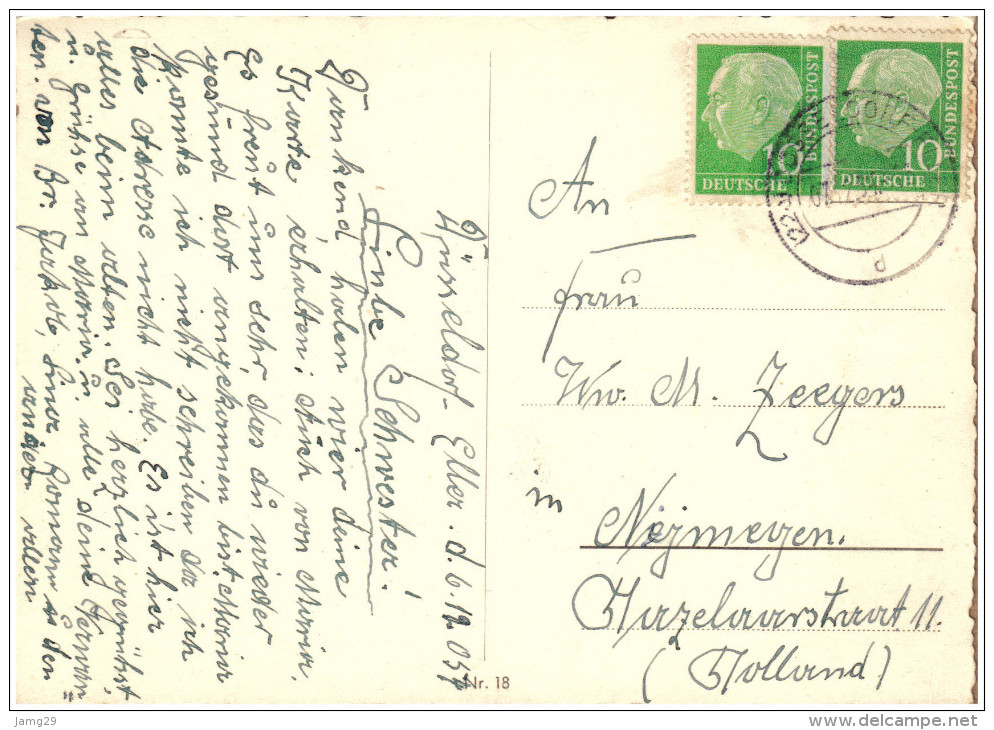 Düsseldorf-Eller. d. 6.12.05
Liebe Schwester!
Dankend haben wier deine
Karte, erhalten: Auch von Maria,
Es freut uns sehr, das du wieder
gesund dort angekommen bist. Maria
konnte ich nicht schreiben da ich
die Adresse nicht habe. Es ist hier
alles beim alten. Sei herzlich gegrüßt
u. Grühse an Maria. u. alle deine Verwan
ten. von Br. Jakob,
von allen
"
Nr. 18
10
DEUTSCHE
BUNDESPOST
10
DEUTSCHE
BUNDESPOST
An
Frau
Ww. M. Zeegers
in
Nejmegen.
Hazelaarstraat 11.
(Holland)
Jamg29
www.delcampe.net